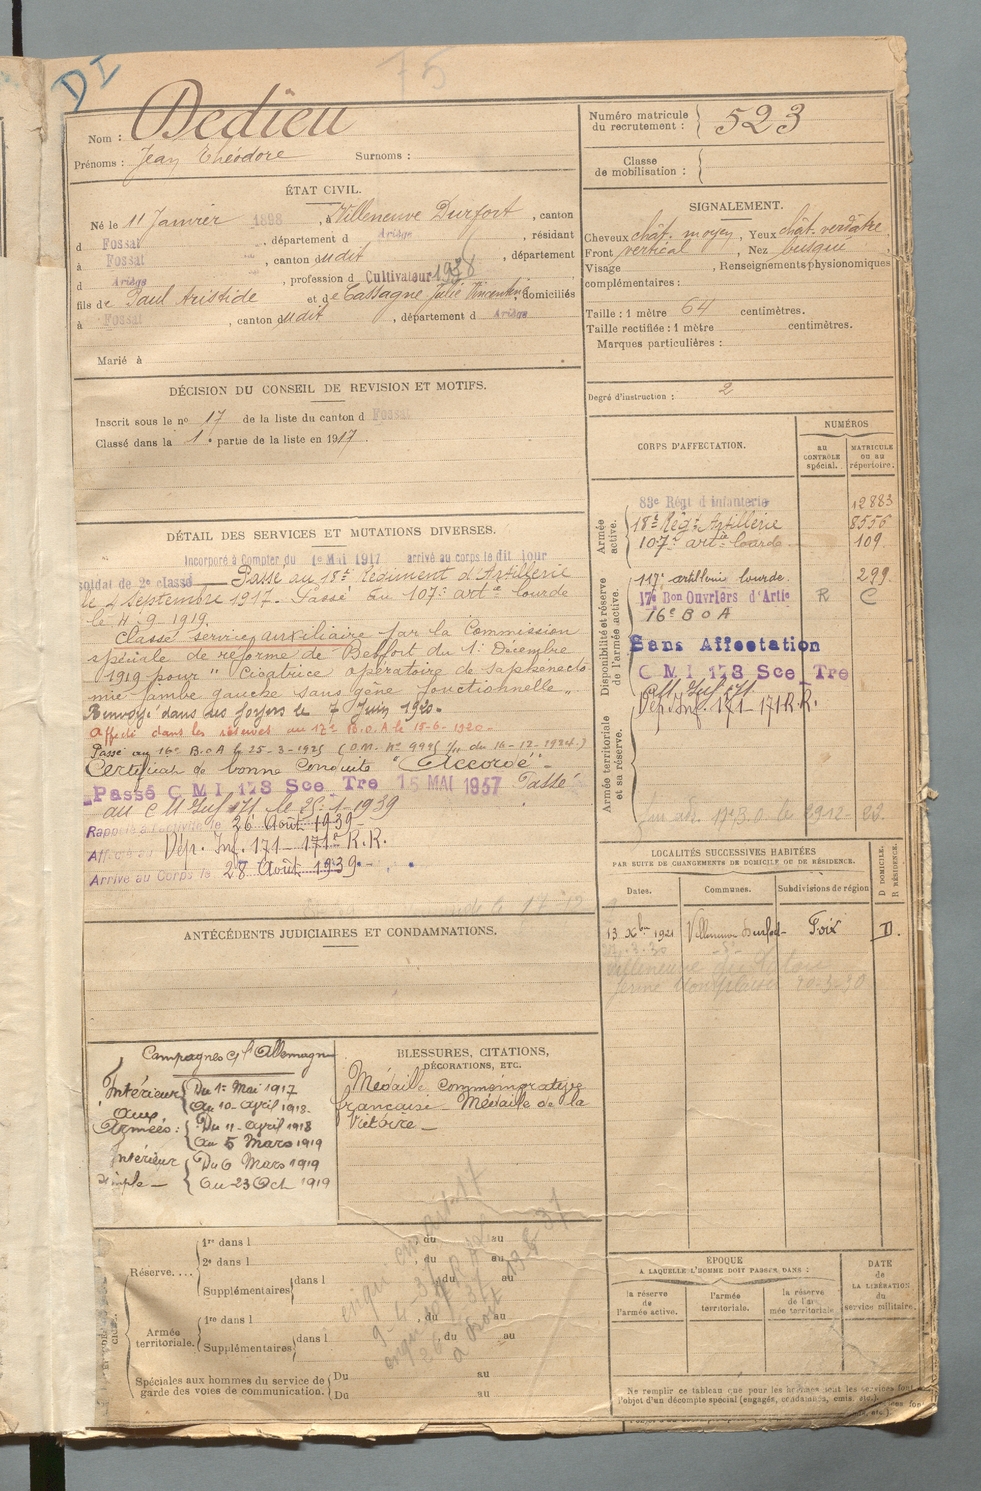 DI
75
Nom : Dedieu
Prénoms : Jean Théodore Surnoms :
Numéro matricule du recrutement : 523
Classe de mobilisation :
ÉTAT CIVIL.
Né le 11 Janvier 1898, à Villeneuve Durfort, canton
d Fossat, département d Ariège, résidant
à Fossat, canton dudit, département
d Ariège, profession d Cultivateur 1928
fils de Paul Aristide et de Cassagne Julie Vincentine, domiciliés
à Fossat, canton dudit, département d Ariège
Marié à
SIGNALEMENT.
Cheveux chât. moyen, Yeux chât. verdâtre
Front vertical, Nez busqué
Visage , Renseignements physionomiques
complémentaires :
Taille : 1 mètre 64 centimètres.
Taille rectifiée : 1 mètre centimètres.
Marques particulières :
Degré d'instruction : 2
DÉCISION DU CONSEIL DE REVISION ET MOTIFS.
Inscrit sous le no 17 de la liste du canton d Fossat
Classé dans la 1e partie de la liste en 1917.
DÉTAIL DES SERVICES ET MUTATIONS DIVERSES.
Incorporé à Compter du 1e Mai 1917 arrivé au corps le dit jour
soldat de 2e classe Passé au 18e Régiment d'Artillerie
le 4 Septembre 1917. Passé au 107e arte lourde
le 4-9-1919.
Classé service auxiliaire par la Commission
spéciale de réforme de Belfort du 1er Décembre
1919 pour " Cicatrice opératoire de saphénecto
mie jambe gauche sans gêne fonctionnelle "
Renvoyé dans ses foyers le 7 Juin 1920.
Affecté dans les réserves au 17e B.O.A le 15-6-1920-
Passé au 16e B.O.A le 25-3-1925 (D.M. No 9995 du 16-12-1924.)
Certificat de bonne Conduite "Accordé"
Passé C M I 173 Sce Tre 15 MAI 1937 Passé
au le 25-1-1939
Rappelé à l'activité le 26 Août 1939-
Affecté au Dép. Inf. 171 - 171e R.R.
Arrivé au Corps le 28 Août 1939.-
CORPS D'AFFECTATION.
NUMÉROS
au CONTRÔLE spécial.
MATRICULE ou au répertoire.
Armée active.
83e Régt d Infanterie 12883
18e Régt Artillerie 8556
107e arte lourde 109
Disponibilité et réserve de l'armée active.
117e artillerie lourde. 299
17e Bon Ouvriers d'Artie R C
16e B O A
Sans Affectation
C M I 173 Sce Tre
Dép. Inf. 171 - 171 R.R.
Armée territoriale et sa réserve.
LOCALITÉS SUCCESSIVES HABITÉES
PAR SUITE DE CHANGEMENTS DE DOMICILE OU DE RÉSIDENCE.
Dates. Communes. Subdivisions de région
D DOMICILE. R RÉSIDENCE.
13 Xbre 1921 Villeneuve Durfort Foix D.
Villeneuve
ferme Montplaisir 20-3-30
ANTÉCÉDENTS JUDICIAIRES ET CONDAMNATIONS.
Campagnes c/ l'Allemagne
Intérieur Du 1er Mai 1917
Au 10-April 1918.
Aux Armées : Du 11-April 1918
Au 5 Mars 1919
Intérieur simple Du 6 Mars 1919
Au 23 Oct 1919
BLESSURES, CITATIONS, DÉCORATIONS, ETC.
Médaille commémorative
française - Médaille de la
Victoire -
Réserve....
1re dans l , du au
2e dans l , du au
Supplémentaires dans l du au
Armée territoriale.
1re dans l , du au
Supplémentaires dans l , du au
Spéciales aux hommes du service de garde des voies de communication.
Du au
Du au
ÉPOQUE
A LAQUELLE L'HOMME DOIT PASSER DANS :
la réserve de l'armée active.
l'armée territoriale.
la réserve de l'armée territoriale
DATE de LA LIBÉRATION du service militaire.
Ne remplir ce tableau que pour les hommes dont les services font
l'objet d'un décompte spécial (engagés, condamnés, omis, etc.).